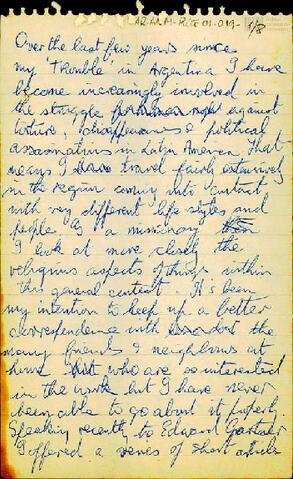 ARANM-PCE-01-019-
1/8
Over the last few years since
my 'trouble' in Argentina I have
become increasingly involved in
the struggle against
torture, disappearances & political
assassinations in Latin America. That
means I travel fairly extensively
in the region coming into contact
with very different life styles and
people. As a missionary
I look at more closely the
religious aspects of things within
this general context. It's been
my intention to keep up a better
correspondence with the
many friends & neighbours at
home who are so interested
in the work but I have never
been able to go about it properly.
Speaking recently to Edward Gartner
I offered a series of short articles